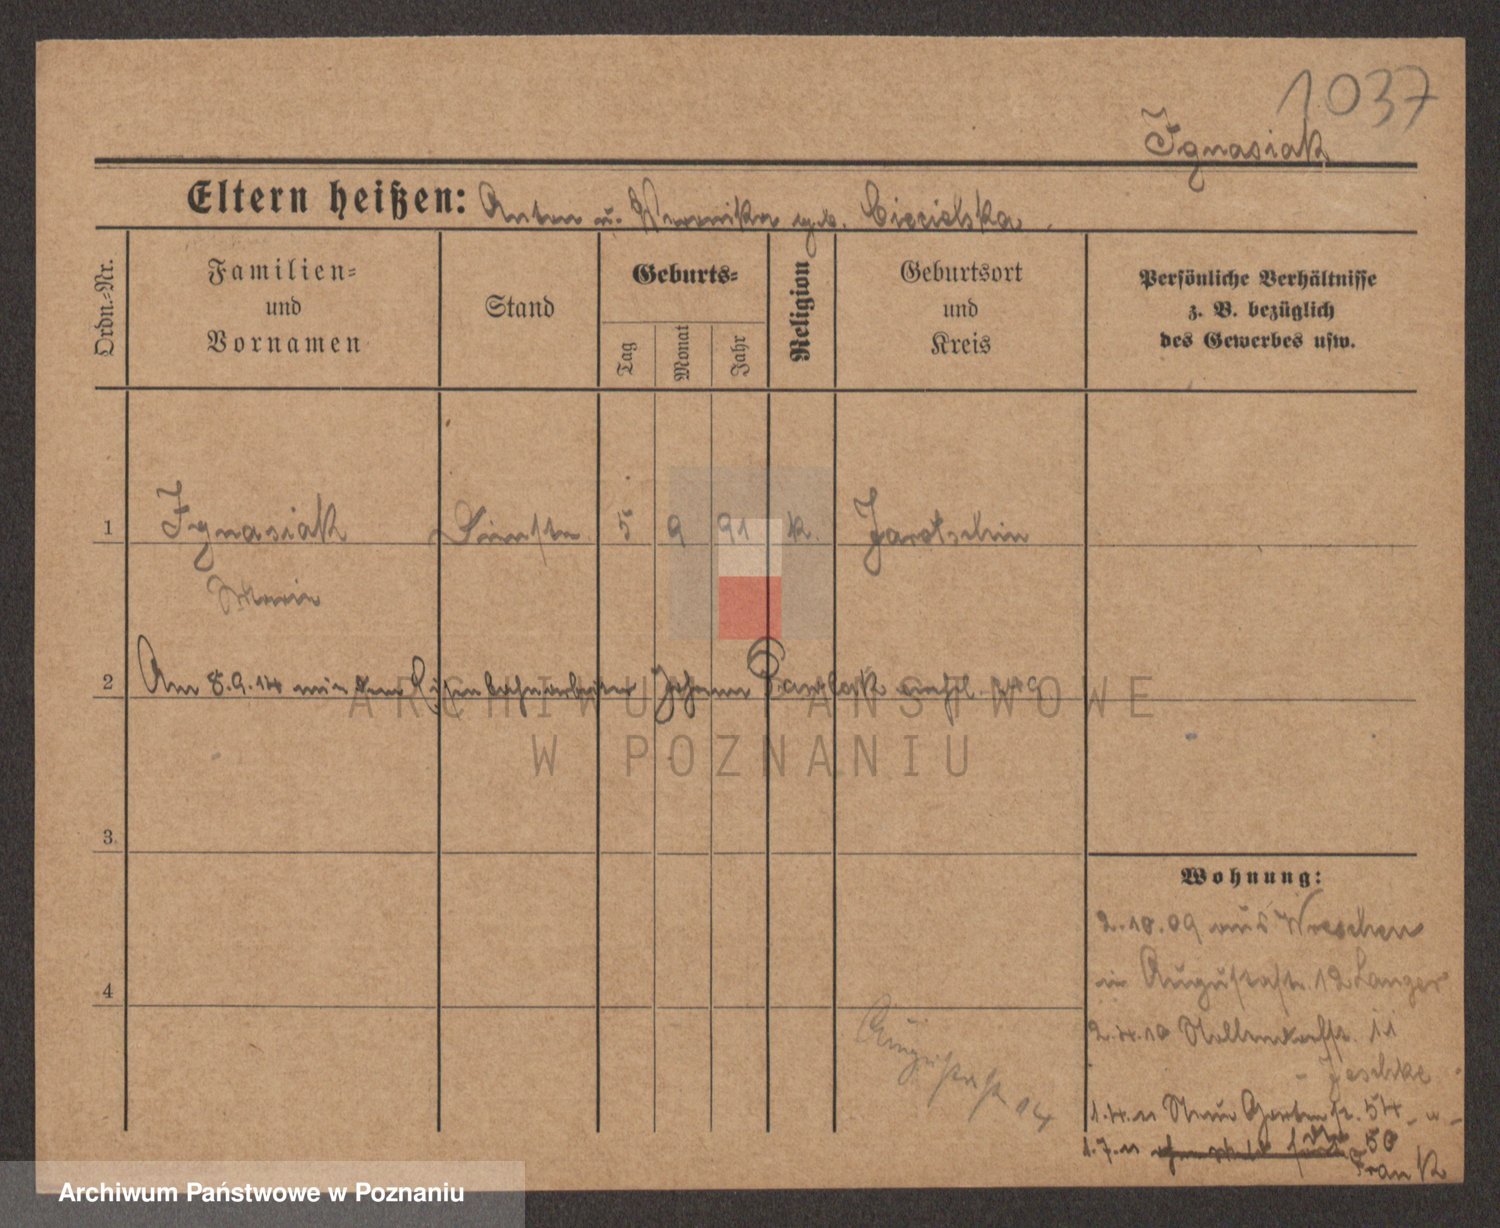 1037
Ignasiak
Eltern heißen: Anton u. Veronika geb. Ciecielska.
Ordn.-Nr.
Familien-
und
Vornamen
Stand
Geburts-
Tag
Monat
Jahr
Religion
Geburtsort
und
Kreis
Persönliche Verhältnisse
z. B. bezüglich
des Gewerbes usw.
1 Ignasiak 5 9 91 k. Jarotschin
Marie
2 Am 8.9.14 mit dem Eisenbahnarbeiter Johann
ARCHIWUM PAŃSTWOWE
W POZNANIU
3.
Wohnung:
2.10.09 aus Wreschen
in Augustastr. 12 Langer
4
2.4.10 Nollendorfstr. 11
Jeschke
Augustastr 14
1.4.11 Neue Gartenstr. 54
1.7.11 50
Frank
Archiwum Państwowe w Poznaniu